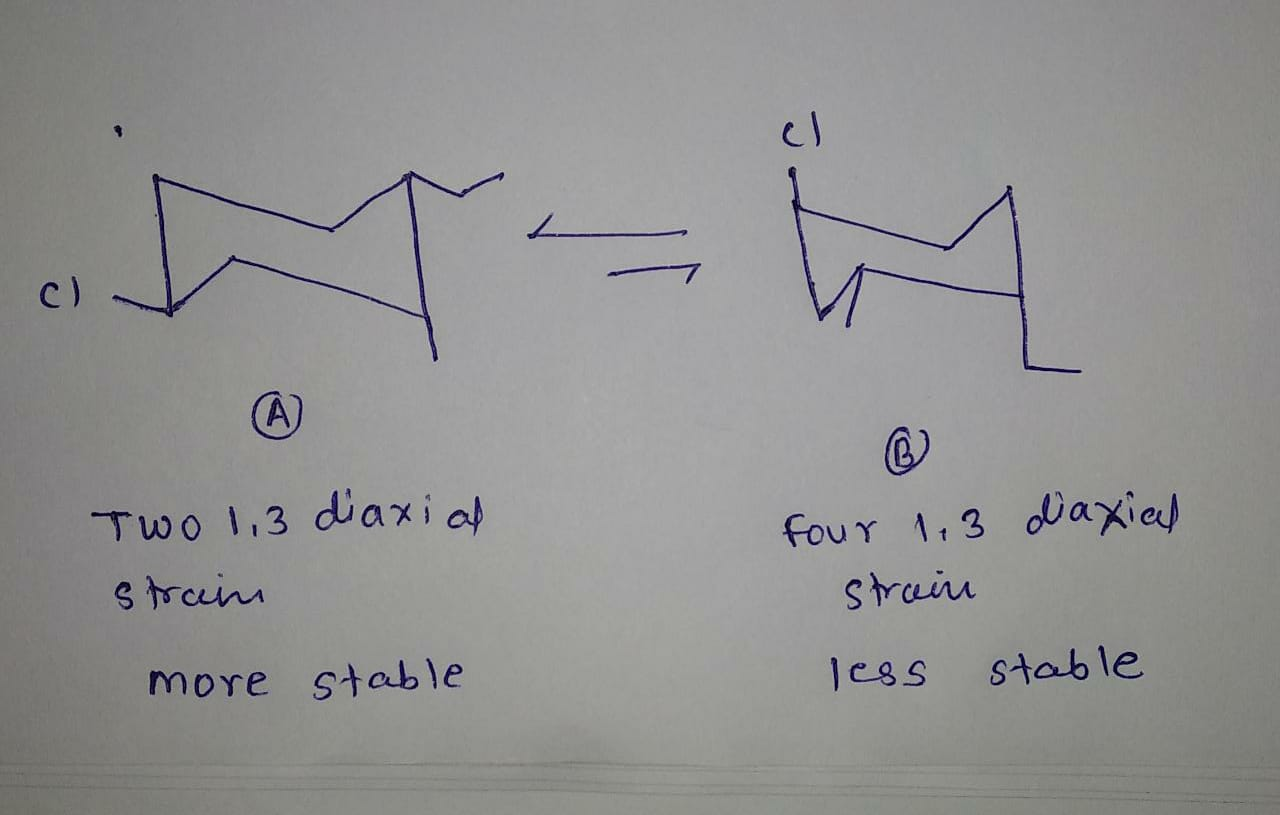 Cl
Cl
A
B
Two 1,3 diaxial
strain
more stable
four 1,3 diaxial
strain
less stable